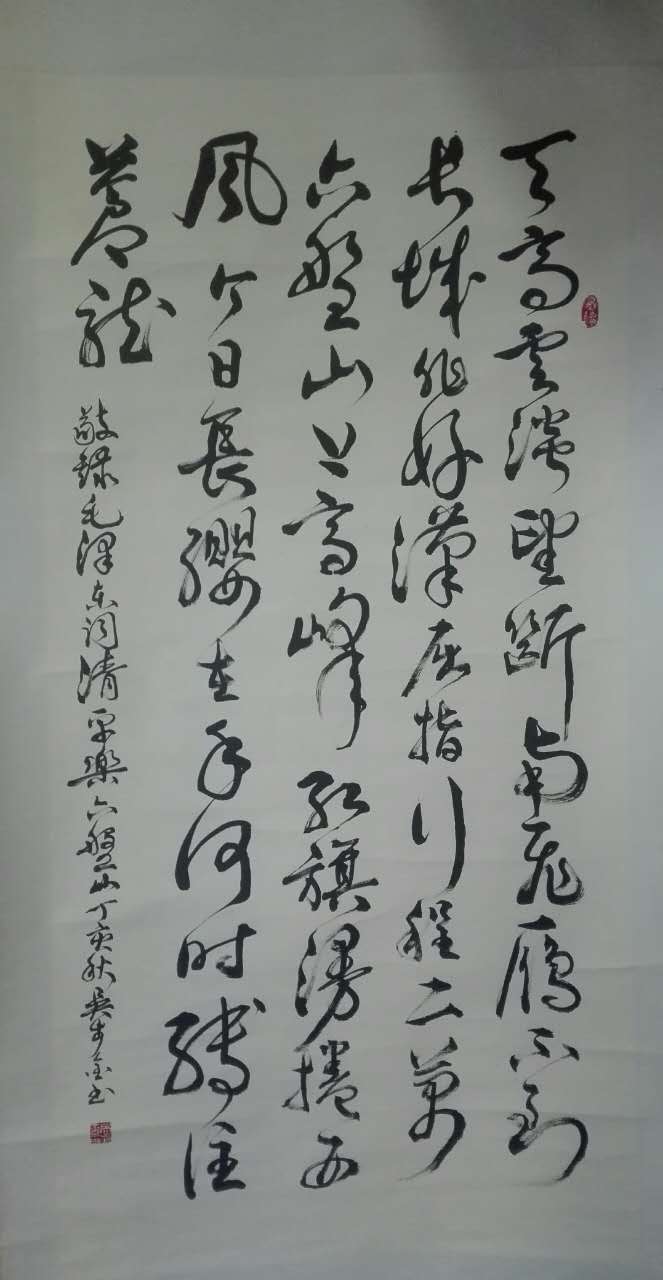 天高雲淡望斷南飛雁不到
長城非好漢屈指行程二萬
六盤山上高峰紅旗漫捲西
風今日長纓在手何时縛住
蒼龍
敬錄毛澤東詞清平樂六盤山丁亥秋吳金书